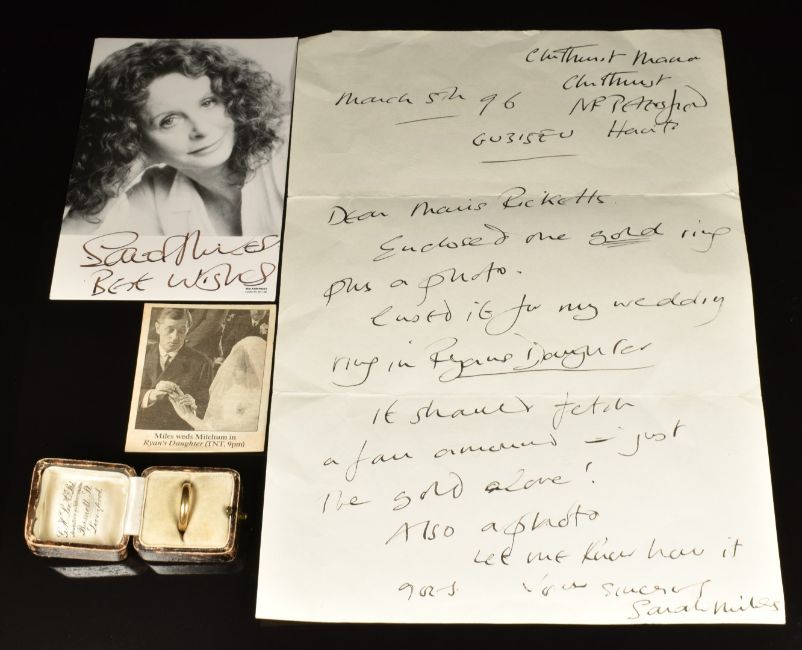 Sarah Miles
Best Wishes
Miles weds Mitchum in
Ryan's Daughter (TNT, 9pm)
Liverpool
Chithurst Manor
Chithurst
March 5th 96 NR Petersfield
GU315EU Hants
Dear Maris Ricketts.
Enclosed one gold ring
plus a photo.
I used it for my wedding
ring in Ryans Daughter
It should fetch
a fair amount – just
the gold alone!
Also a photo
Let me know how it
goes. Yours sincerely
Sarah Miles